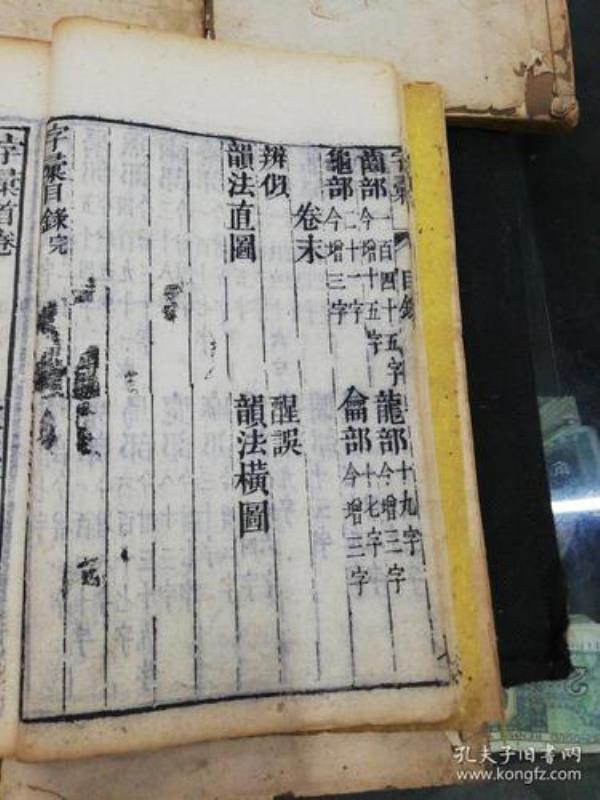 字彙 目錄
齒部 一百四十五字 今增十五字 龍部 十九字 今增三字
龜部 二十一字 今增三字 龠部 十七字 今增三字
卷末
辨似 醒誤
韻法直圖 韻法橫圖
字彙目錄完
字彙首卷
孔夫子旧书网
www.kongfz.com